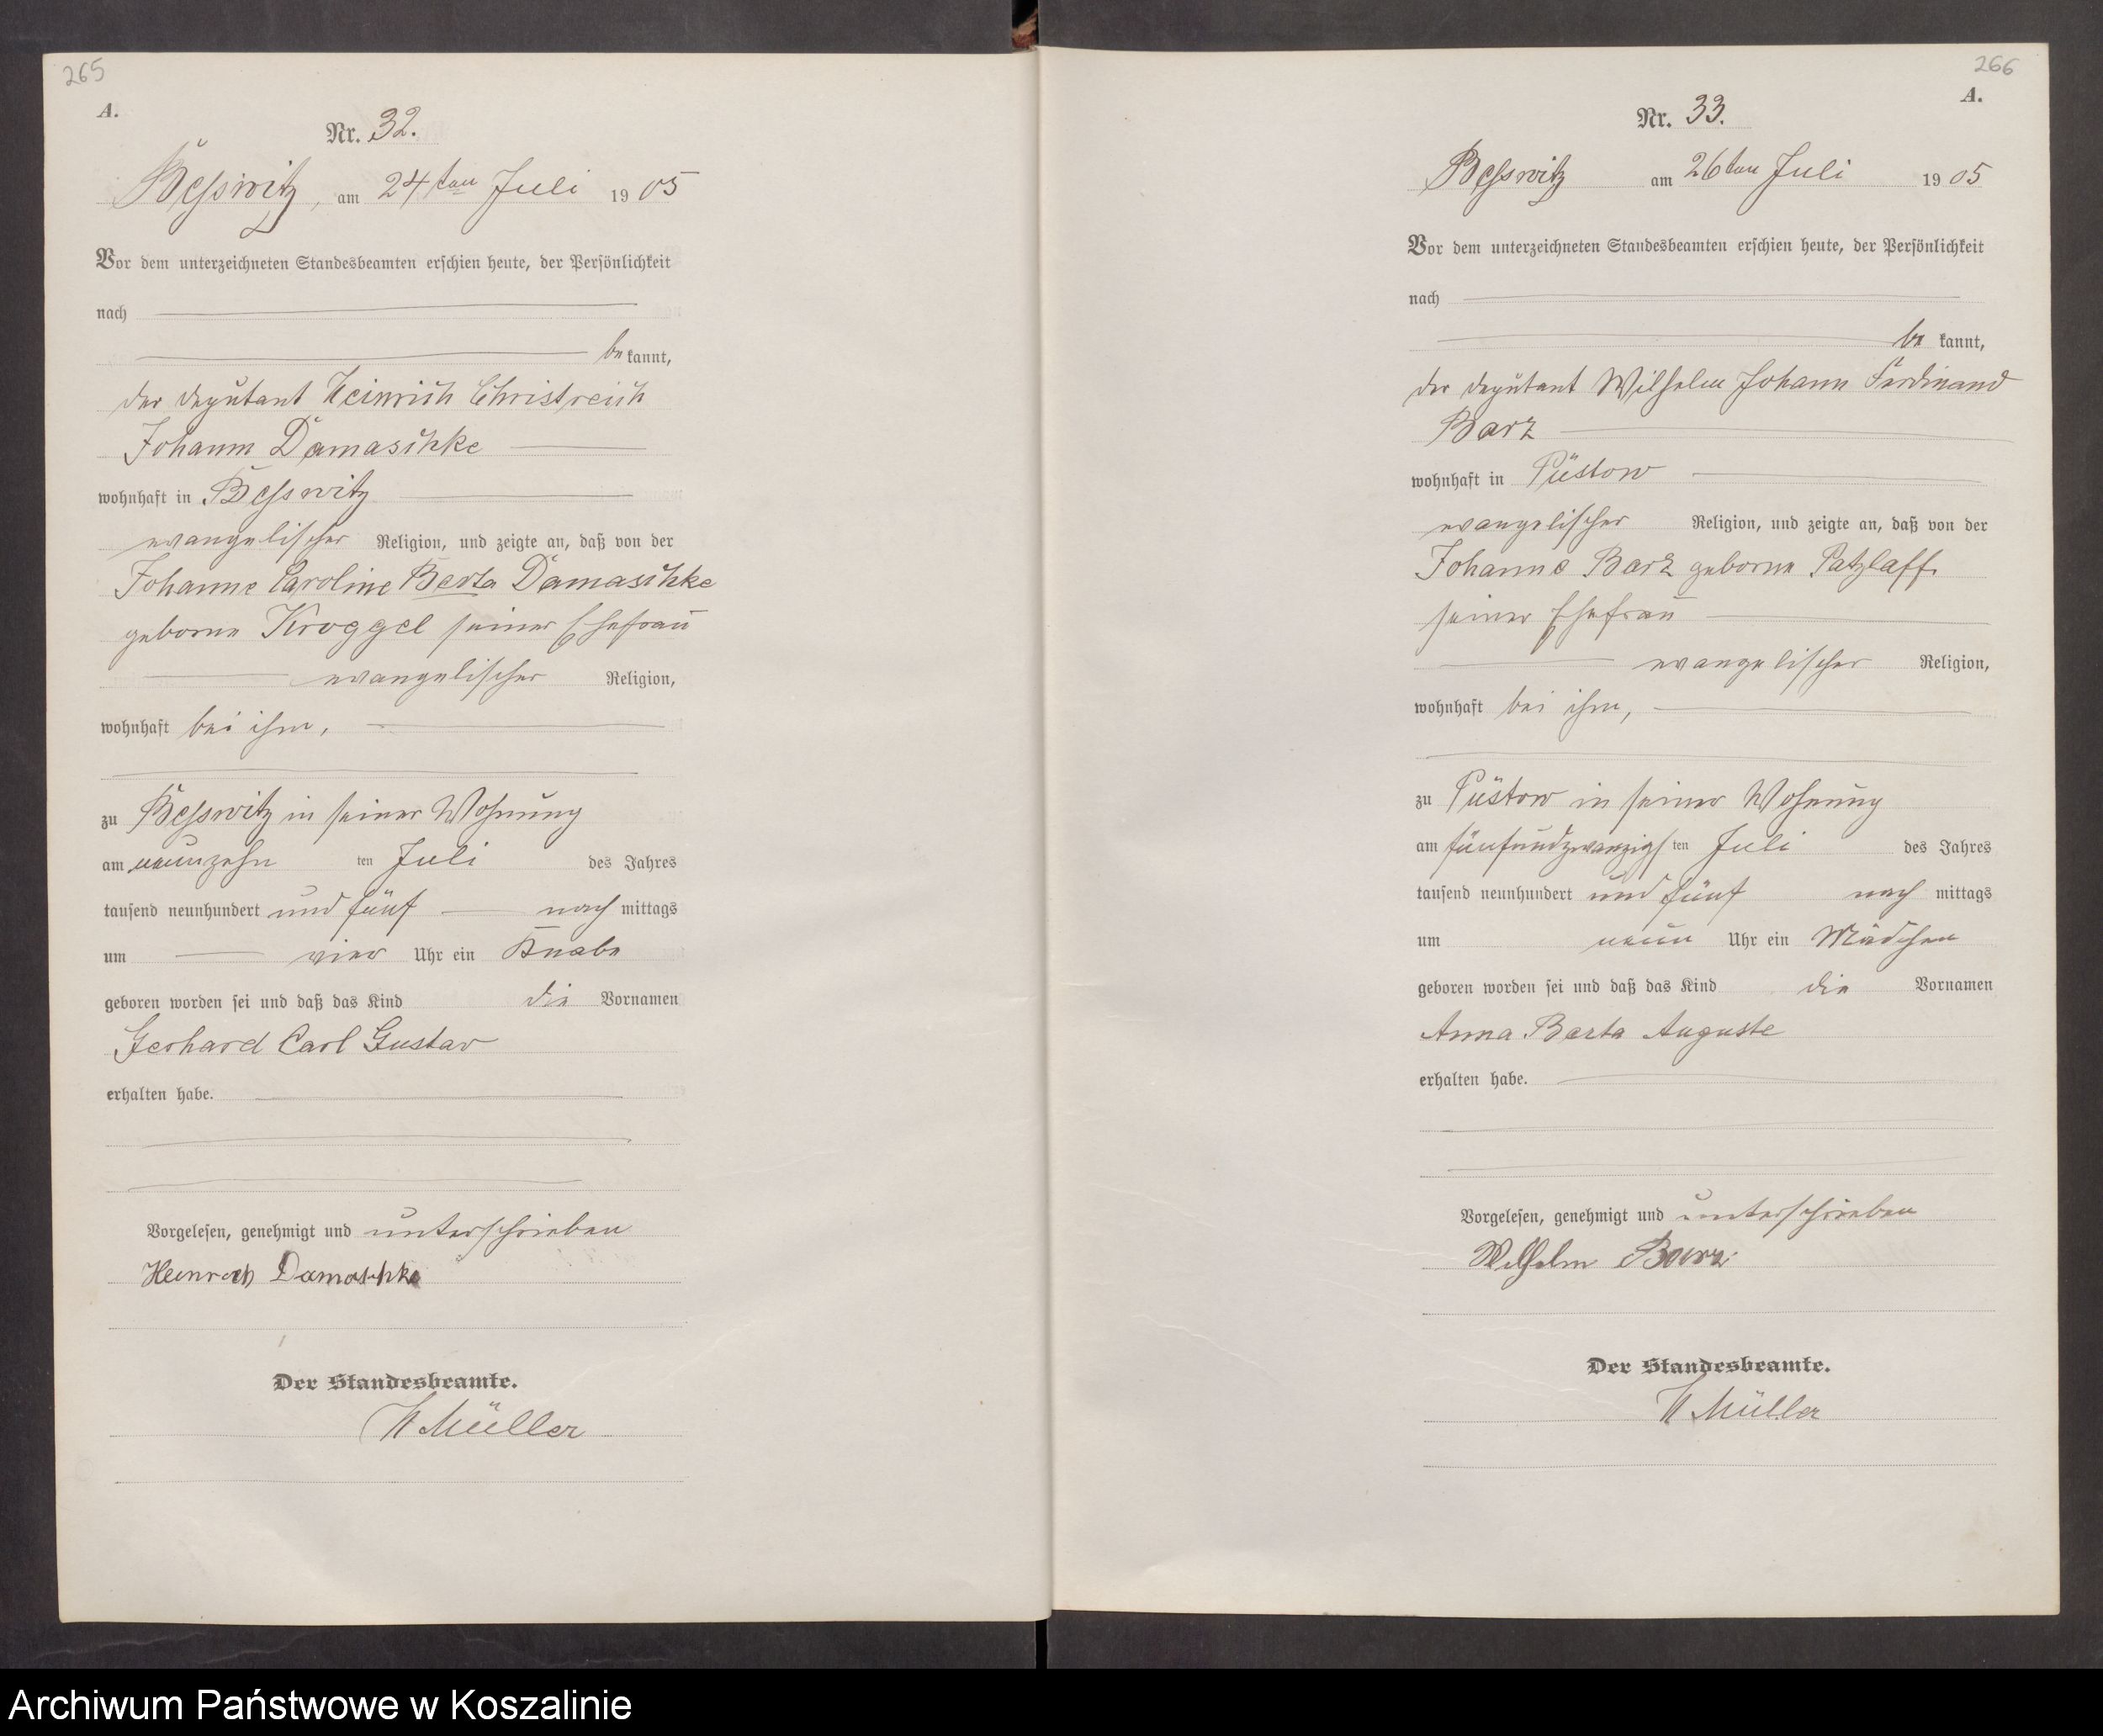 265
A.
Nr. 32.
Besswitz, am 24ten Juli 1905
Vor dem unterzeichneten Standesbeamten erschien heute, der Persönlichkeit
nach
be kannt,
der Deputant Heinrich Christreich
Johann Damaschke
wohnhaft in Besswitz
evangelischer Religion, und zeigte an, daß von der
Johanne Caroline Berta Damaschke
geborne Kroggel seiner Ehefrau
evangelischer Religion,
wohnhaft bei ihm,
zu Besswitz in seiner Wohnung
am neunzehn ten Juli des Jahres
tausend neunhundert und fünf nach mittags
um vier Uhr ein Knabe
geboren worden sei und daß das Kind die Vornamen
Gerhard Carl Gustav
erhalten habe.
Vorgelesen, genehmigt und unterschrieben
Heinrich Damaschke
Der Standesbeamte.
H Müller
266
A.
Nr. 33.
Besswitz am 26ten Juli 1905
Vor dem unterzeichneten Standesbeamten erschien heute, der Persönlichkeit
nach
be kannt,
der Deputant Wilhelm Johann Ferdinand
Barz
wohnhaft in Püstow
evangelischer Religion, und zeigte an, daß von der
Johanne Barz geborne Patzlaff
seiner Ehefrau
evangelischer Religion,
wohnhaft bei ihm,
zu Püstow in seiner Wohnung
am fünfundzwanzigs ten Juli des Jahres
tausend neunhundert und fünf nach mittags
um neun Uhr ein Mädchen
geboren worden sei und daß das Kind die Vornamen
Anna Berta Auguste
erhalten habe.
Vorgelesen, genehmigt und unterschrieben
Wilhelm Barz
Der Standesbeamte.
H Müller
Archiwum Państwowe w Koszalinie